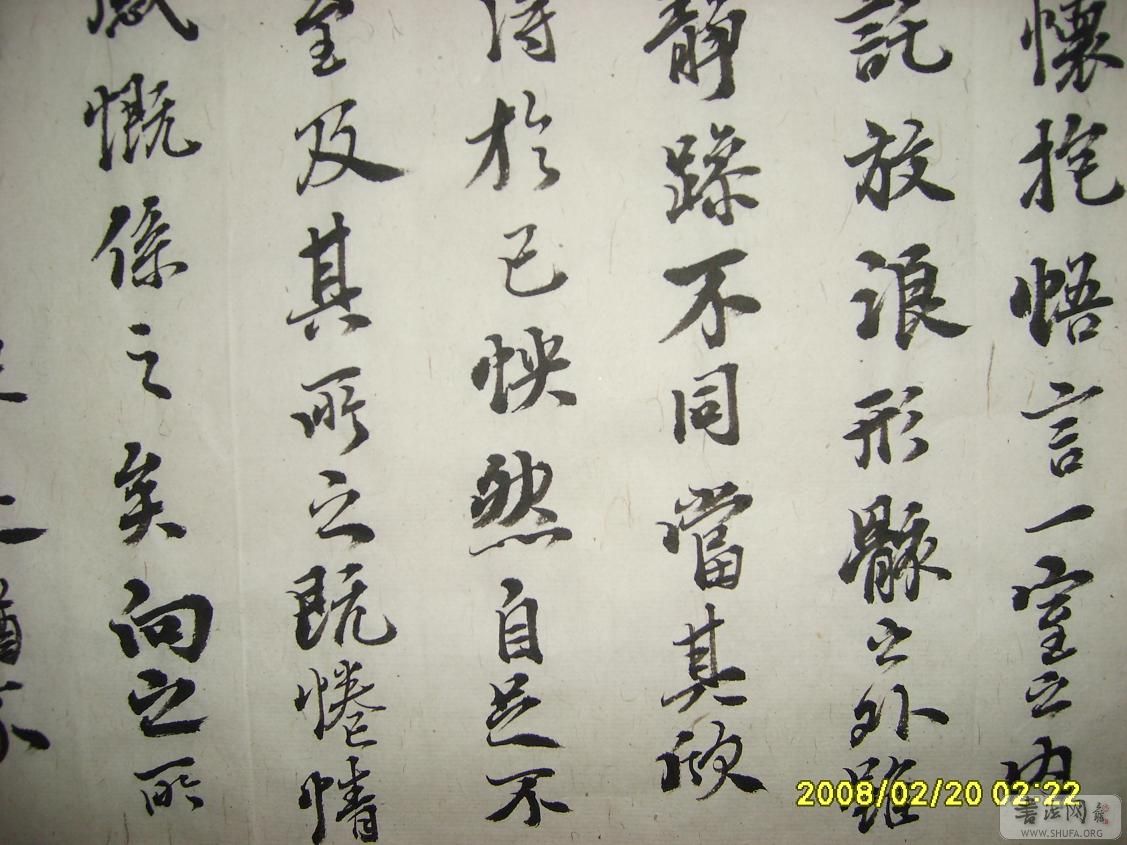 懷抱悟言一室之内
託放浪形骸之外雖
靜躁不同當其欣
得於己怏然自足不
至及其所之既惓情
感慨係之矣向之所
猶不
2008/02/20 02:22
書法网
WWW.SHUFA.ORG